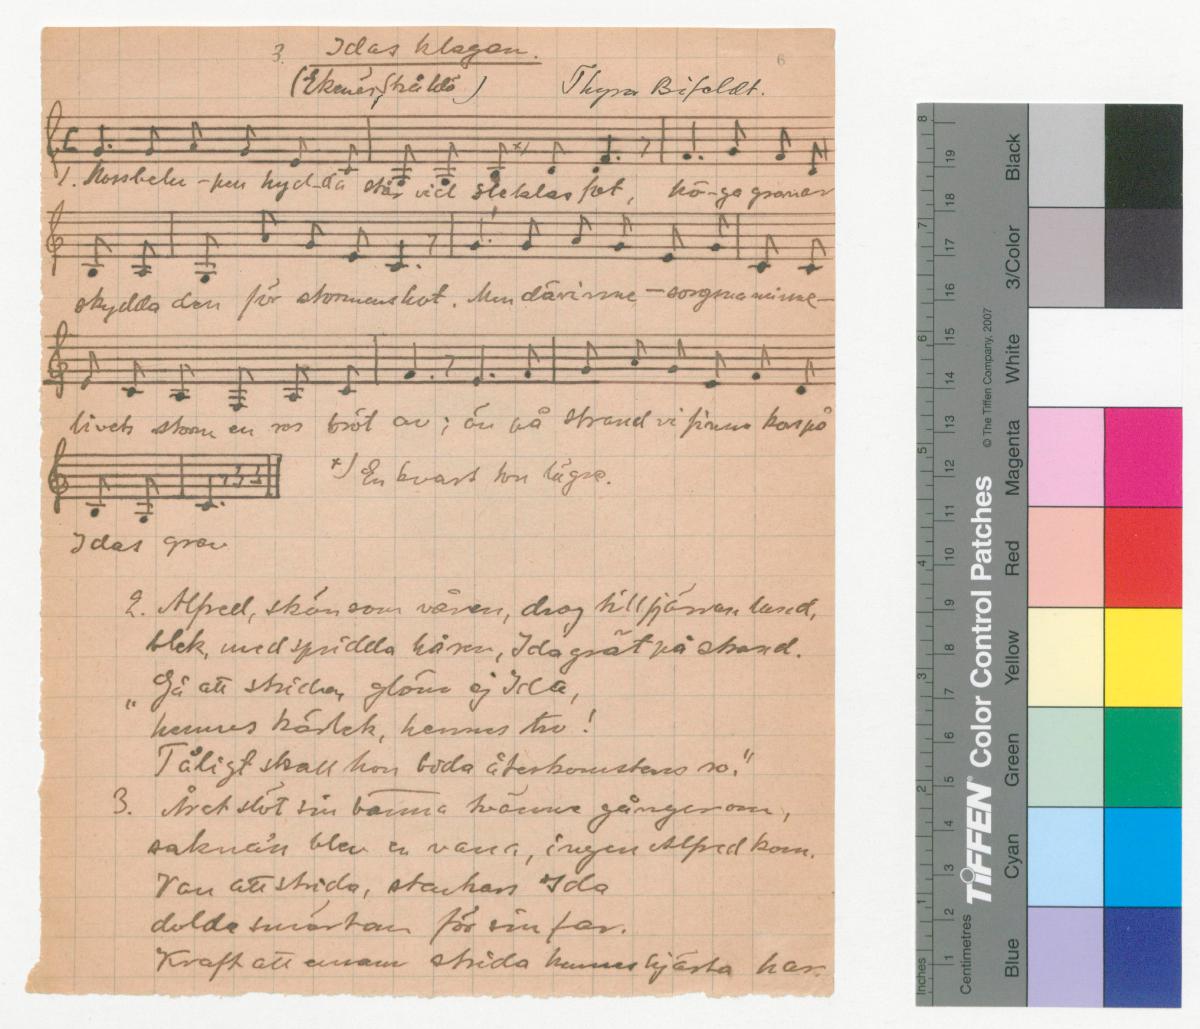 3. Idas klagan.
6
(Ekenäs, Skåldö) Thyra Bifeldt.
1. Mossbelu-pen hyd-da står vid sleklas fot, hö-ga granar
skydda den för stormens hot. Men därinne - sorgsna minne -
livets storm en ros bröt av; än på strand vi finna kors på
x) En kvart ton lägre.
Idas grav
2. Alfred, skön som våren, drog till fjärran land,
blek, med spridda håren, Ida grät på strand.
"Gå att strida, glöm ej Ida,
hennes kärlek, hennes tro!
Tåligt skall hon bida återkomstens ro."
3. Året slöt sin bana tvänne gånger om,
saknan blev en vana, ingen Alfred kom.
Van att strida, stackars Ida
dolde smärtan för sin far.
Kraft att ensam strida hennes hjärta har.
Inches 1 2 3 4 5 6 7 8
Centimetres 1 2 3 4 5 6 7 8 9 10 11 12 13 14 15 16 17 18 19
TIFFEN® Color Control Patches © The Tiffen Company, 2007
Blue Cyan Green Yellow Red Magenta White 3/Color Black